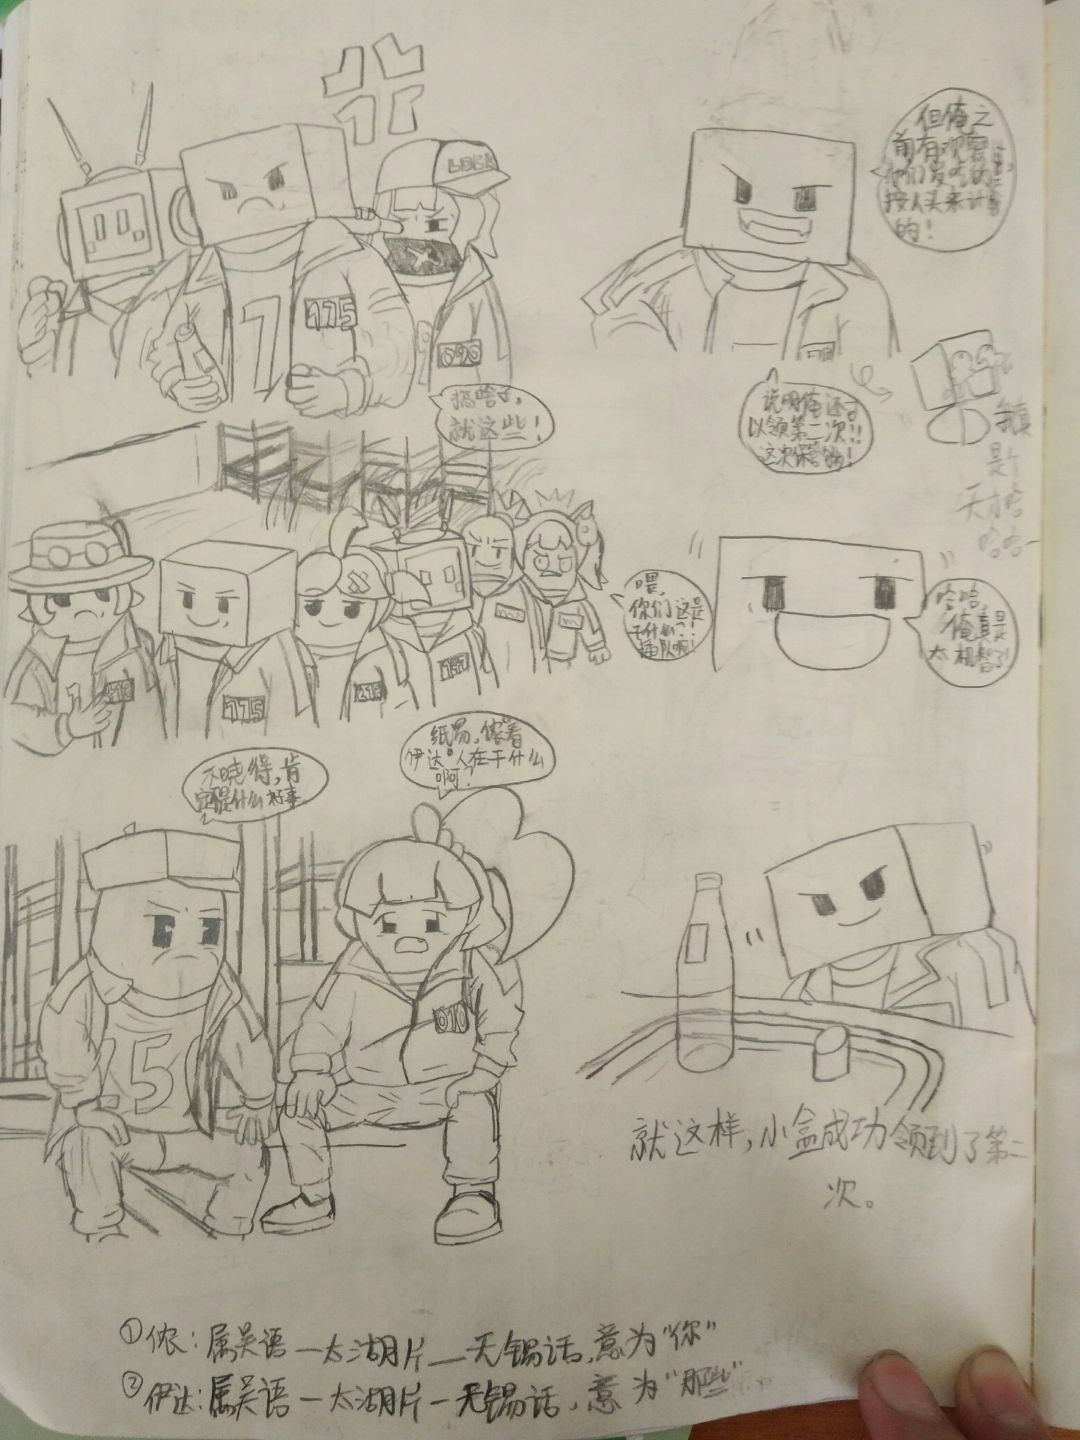 LOCK
775
090
搞啥子,
就这些!
但俺之
前有观察,
他们发吃的是
按人头来计算
的!
说明俺还可
以领第二次!!
这次保管够!
我真
是个
天才哈
哈哈-
775
喂,
你们这是
干什么?!
插队啊!
哈哈,
俺真是
太机智了!
纸鸢,侬看
伊达²人在干什么
啊?
不晓得,肯
定不是什么好事
.5
010
就这样,小盒成功领到了第二
次。
①侬:属吴语—太湖片—无锡话,意为"你"
②伊达:属吴语—太湖片—无锡话,意为"那些"